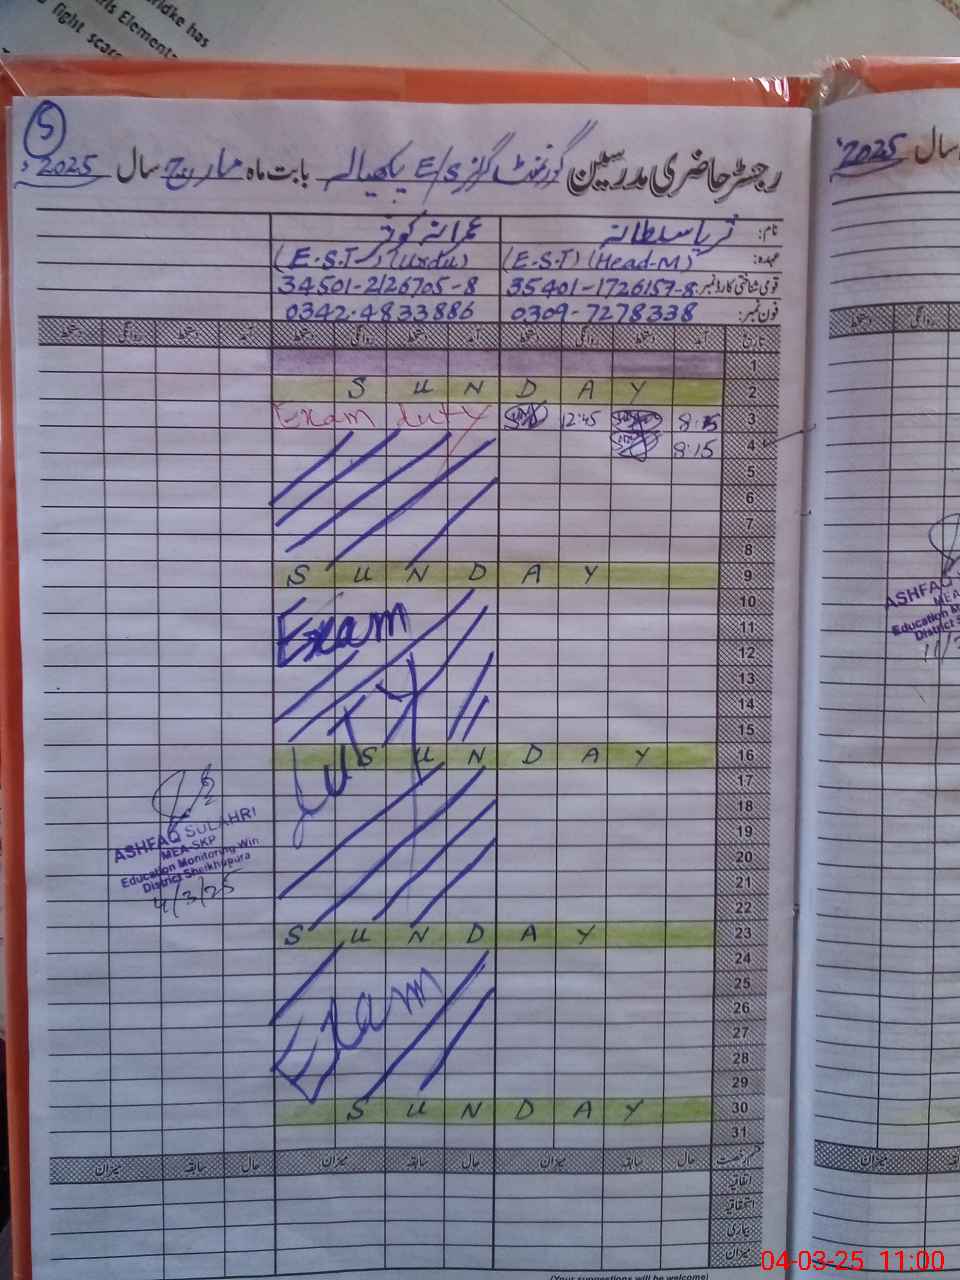 ridke has
rls Element
fight scar
5
رجسٹر حاضری مدرسین گورنمنٹ گرلز E/S بابت ماہ مارچ سال 2025
2025 سال
نام: ثریا سلطانہ عمرانہ کوثر
عہدہ: (E.S.T) (Head-M) (E.S.T) (Urdu)
قومی شناختی کارڈ نمبر: 35401-1726157-8 34501-2126705-8
فون نمبر: 0309-7278338 0342-4833886
تاریخ آمد دستخط روانگی دستخط آمد دستخط روانگی دستخط آمد دستخط روانگی دستخط
1
2 SUNDAY
3 8:15 12:45 Exam duty
4 8:15
5
6
7
8
9 SUNDAY
10
11 Exam
12
13
14 duty
15
16 SUNDAY
17
18
19
20
21
22
23 SUNDAY
24
25
26 Exam
27
28
29
30 SUNDAY
31
ASHFAQ SULAHRI
MEA-SKP
Education Monitoring Win
District Sheikhupura
4/3/25
ASHFAQ
MEA
Education
District
حال سابقہ میزان حال سابقہ میزان حال سابقہ میزان
اتفاقیہ
استحقاقیہ
بیماری
میزان
(Your suggestions will be welcome)
04-03-25 11:00